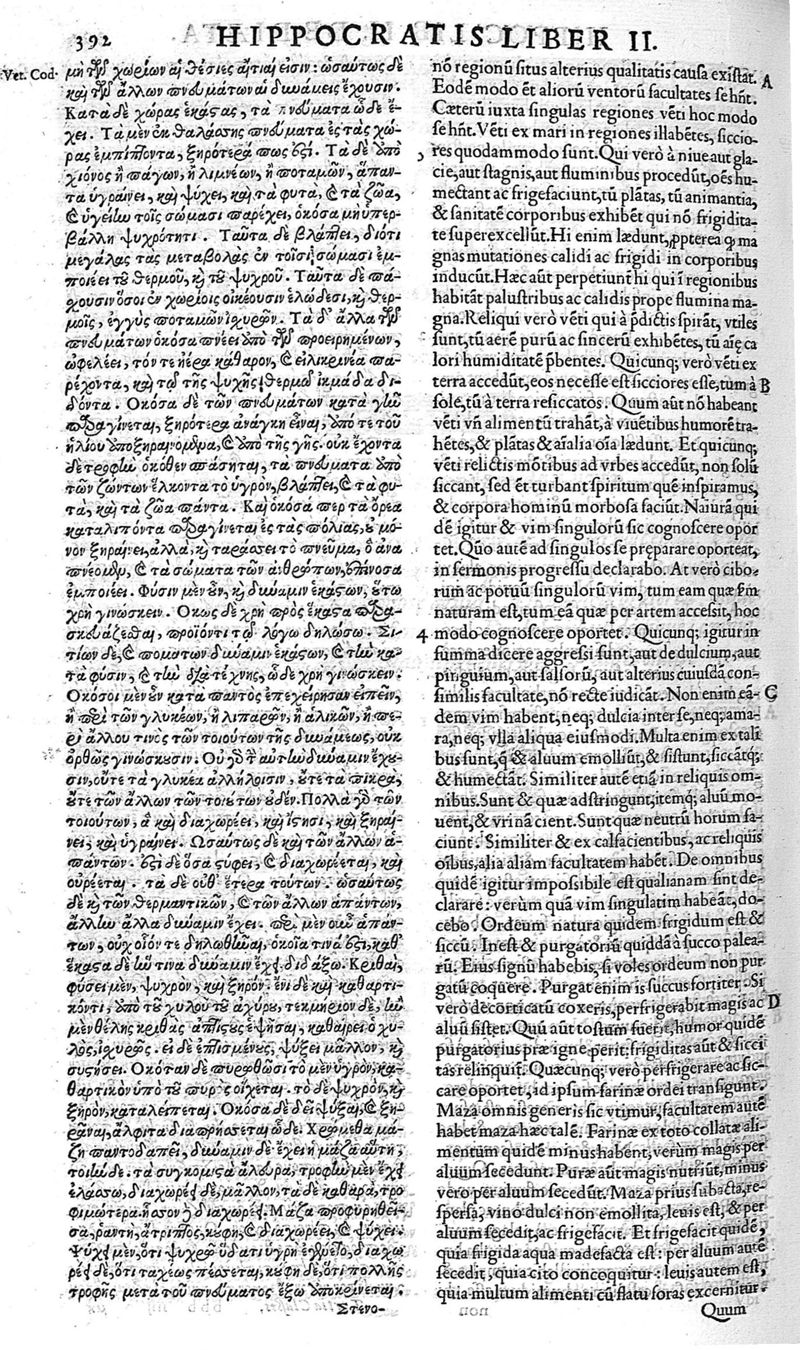 392 HIPPOCRATIS LIBER II.
Vet. Cod.
μὴ τῶν χωρίων αἱ θέσιες αἴτιαί εἰσιν: ὡσαύτως δὲ
καὶ τῶν ἄλλων πνευμάτων αἱ δυνάμεις ἔχουσιν.
Κατὰ δὲ χώρας ἑκάστας, τὰ πνεύματα ὧδε ἔ-
χει. Τὰ μὲν ἐκ θαλάσσης πνεύματα ἐς τὰς χώ-
ρας ἐμπίπτοντα, ξηρότερά πως ἐστί. Τὰ δὲ ὑπὸ
χιόνος ἢ πάγων, ἢ λιμνέων, ἢ ποταμῶν, ἅπαν-
τα ὑγραίνει, καὶ ψύχει, καὶ τὰ φυτὰ, καὶ τὰ ζῶα,
καὶ ὑγείην τοῖς σώμασι παρέχει, ὁκόσα μὴ ὑπερ-
βάλλῃ ψυχρότητι. Ταῦτα δὲ βλάπτει, διότι
μεγάλας τὰς μεταβολὰς ἐν τοῖσι σώμασι ἐμ-
ποιέει τοῦ θερμοῦ, καὶ τοῦ ψυχροῦ. Ταῦτα δὲ πά-
χουσιν ὅσοι ἐν χωρίοις οἰκέουσιν ἑλώδεσι, καὶ θερ-
μοῖς, ἐγγὺς ποταμῶν ἰσχυρῶν. Τὰ δ' ἄλλα τῶν
πνευμάτων ὁκόσα πνέει ὑπὸ τῶν προειρημένων,
ὠφελέει, τόν τε ἠέρα καθαρὸν, καὶ εἰλικρινέα πα-
ρέχοντα, καὶ τῷ τῆς ψυχῆς θερμῷ ἰκμάδα δι-
δόντα. Ὁκόσα δὲ τῶν πνευμάτων κατὰ γῆν
παραγίνεται, ξηρότερα ἀνάγκη εἶναι, ὑπό τε τοῦ
ἡλίου ὑποξηραινόμενα, καὶ ὑπὸ τῆς γῆς. οὐκ ἔχοντα
δὲ τροφὴν ὁκόθεν πάσηται, τὰ πνεύματα ὑπὸ
τῶν ζώντων ἕλκοντα τὸ ὑγρὸν, βλάπτει, καὶ τὰ φυ-
τὰ, καὶ τὰ ζῶα πάντα. Καὶ ὁκόσα περ τὰ ὄρεα
καταλιπόντα παραγίνεται ἐς τὰς πόλιας, οὐ μό-
νον ξηραίνει, ἀλλὰ, καὶ ταράσσει τὸ πνεῦμα, ὃ ἀνα
πνέομεν, καὶ τὰ σώματα τῶν ἀνθρώπων, ἐπίνοσα
ἐμποιέει. Φύσιν μὲν οὖν, καὶ δύναμιν ἑκάστων, οὕτω
χρὴ γινώσκειν. Ὅκως δὲ χρὴ πρὸς ἕκαστα παρα-
σκευάζεσθαι, προϊόντι τῷ λόγῳ δηλώσω. Σι-
τίων δὲ, καὶ πομάτων δύναμιν ἑκάστων, καὶ τὴν κα-
τὰ φύσιν, καὶ τὴν διὰ τέχνης, ὧδε χρὴ γινώσκειν.
Ὁκόσοι μὲν οὖν κατὰ παντὸς ἐπεχείρησαν εἰπεῖν,
ἢ περὶ τῶν γλυκέων, ἢ λιπαρῶν, ἢ ἁλικῶν, ἢ πε-
ρὶ ἄλλου τινὸς τῶν τοιούτων τῆς δυνάμεως, οὐκ
ὀρθῶς γινώσκουσιν. Οὐ γὰρ τὴν αὐτὴν δύναμιν ἔχου-
σιν, οὔτε τὰ γλυκέα ἀλλήλοισιν, οὔτε τὰ πικρὰ,
οὔτε τῶν ἄλλων τῶν τοιούτων οὐδέν. Πολλὰ γὰρ τῶν
τοιούτων, ἃ καὶ διαχωρέει, καὶ ἵστησι, καὶ ξηραί-
νει, καὶ ὑγραίνει. Ὡσαύτως δὲ καὶ τῶν ἄλλων ἁ-
πάντων. ἔστι δὲ ὅσα στύφει, καὶ διαχωρέεται, καὶ
οὐρέεται. τὰ δὲ οὐθ' ἕτερα τούτων. ὡσαύτως
δὲ καὶ τῶν θερμαντικῶν, καὶ τῶν ἄλλων ἁπάντων,
ἄλλην ἄλλα δύναμιν ἔχει. περὶ μὲν οὖν ἁπάν-
των, οὐχ οἷόν τε δηλωθῆναι, ὁκοῖά τινά ἐστι, καθ'
ἕκαστα δὲ ἥν τινα δύναμιν ἔχει διδάξω. Κριθαὶ,
φύσει μὲν, ψυχρὸν, καὶ ξηρόν. ἔνι δὲ καὶ καθαρτι-
κόν τι, ὑπὸ τοῦ χυλοῦ τοῦ ἀχύρου, τεκμήριον δὲ, ἢν
μὲν θέλῃς κριθὰς ἀπτίστους ἑψῆσαι, καθαίρει ὁ χυ-
λὸς, ἰσχυρῶς. εἰ δὲ ἐπτισμένους, ψύξει μᾶλλον, καὶ
συστήσει. Ὁκόταν δὲ πυρωθῶσι τὸ μὲν ὑγρὸν, κα-
θαρτικὸν ὑπὸ τοῦ πυρὸς οἴχεται. τὸ δὲ ψυχρὸν, καὶ
ξηρὸν, καταλείπεται. Ὁκόσα δὲ δεῖ ψῦξαι, καὶ ξη-
ρᾶναι, ἄλφιτα διαπρήσσεται ὧδε. Χρώμεθα μά-
ζῃ παντοδαπεῖ, δύναμιν δὲ ἔχει ἡ μάζα αὕτη,
τοιήνδε. τὰ συγκομιστὰ ἄλευρα, τροφὴν μὲν ἔχει
ἐλάσσω, διαχωρέει δὲ, μᾶλλον, τὰ δὲ καθαρὰ, τρο
φιμώτερα ἧσσον δὲ διαχωρέει. Μάζα προφυρηθεῖ-
σα, ῥαντὴ, ἄτριπτος, κούφη, καὶ διαχωρέει, καὶ ψύχει.
Ψύχει μὲν, ὅτι ψυχρῷ ὕδατι ὑγρὴ ἐγένετο, διαχω
ρέει δὲ, ὅτι ταχέως πέσσεται, κούφη δὲ, ὅτι πολλῆς
τροφῆς μετὰ τοῦ πνεύματος ἔξω ἀποκρίνεται.
Στενο-
nō regionū situs alterius qualitatis causa existāt. A
Eodē modo et aliorū ventorū facultates se hñt.
Cæterū iuxta singulas regiones vēti hoc modo
se hñt. Vēti ex mari in regiones illabētes, siccio-
3 res quodammodo sunt. Qui verò à niue aut gla-
cie, aut stagnis, aut fluminibus procedūt, oēs hu-
mectant ac frigefaciunt, tū plātas, tū animantia,
& sanitatē corporibus exhibēt qui nō frigidita-
te superexcellūt. Hi enim lædunt, ꝓpterea ꝙ ma
gnas mutationes calidi ac frigidi in corporibus
inducūt. Hæc aūt perpetiunt hi qui ī regionibus
habitāt palustribus ac calidis prope flumina ma-
gna. Reliqui verò vēti qui à p̄dictis spirāt, vtiles
sunt, tū aerē purū ac sincerū exhibētes, tū aīę ca
lori humiditatē p̄bentes. Quicunq; verò vēti ex
terra accedūt, eos necesse est sicciores esse, tum à B
sole, tū à terra resiccatos. Quum aūt nō habeant
vēti vñ alimentū trahāt, à viuētibus humorē tra-
hētes, & plātas & aīalia oīa lædunt. Et quicunq;
vēti relictis mōtibus ad vrbes accedūt, non solū
siccant, sed et turbant spiritum quē inspiramus,
& corpora hominū morbosa faciūt. Naturā qui
dē igitur & vim singulorū sic cognoscere opor
tet. Quo autē ad singulos se pręparare oporteat,
in sermonis progressu declarabo. At verò cibo-
rum ac potuū singulorū vim, tum eam quæ fm
naturam est, tum eā quæ per artem accessit, hoc
4 modo cognoscere oportet. Quicunq; igitur in
summa dicere aggressi sunt, aut de dulcium, aut
pinguium, aut salsorū, aut alterius cuiusdā con-
similis facultate, nō recte iudicāt. Non enim eā- C
dem vim habent, neq; dulcia inter se, neq; ama-
ra, neq; vlla aliqua eiusmodi. Multa enim ex tali
bus sunt, q̄ & aluum emolliūt, & sistunt, siccātq;
& humectāt. Similiter autē etiā in reliquis om-
nibus. Sunt & quæ adstringunt, itemq; aluū mo-
uent, & vrinā cient. Sunt quæ neutrū horum fa-
ciunt. Similiter & ex calfacientibus, ac reliquis
oībus, alia aliam facultatem habēt. De omnibus
quidē igitur impossibile est qualianam sint de-
clarare: verùm quā vim singulatim habeāt, do-
cebo. Ordeum natura quidem frigidum est &
siccū. Inest & purgatoriū quiddā à succo palea-
rū. Eius signū habebis, si voles ordeum non pur
gatū coquere. Purgat enim is succus fortiter. Si
verò decorticatū coxeris, perfrigerabit magis ac D
aluū sistet. Quū aūt tostum fuerit, humor quidē
purgatorius præ igne perit: frigiditas aūt & sicci
tas relinquit̃. Quæcunq; verò perfrigerare ac sic-
care oportet, id ipsum farinæ ordei transigunt.
Maza omnis generis sic vtimur, facultatem autē
habet maza hæc talē. Farinæ ex toto collatæ ali-
mentum quidē minus habent, verum magis per
aluum secedunt. Puræ aūt magis nutriūt, minus
vero per aluum secedūt. Maza prius subacta, re-
spersa, vino dulci non emollita, leuis est, & per
aluum secedit, ac frigefacit. Et frigefacit quidē,
quia frigida aqua madefacta est: per aluum autē
secedit, quia cito concoquitur: leuis autem est,
quia multum alimenti cū flatu foras excernitur.
Quum